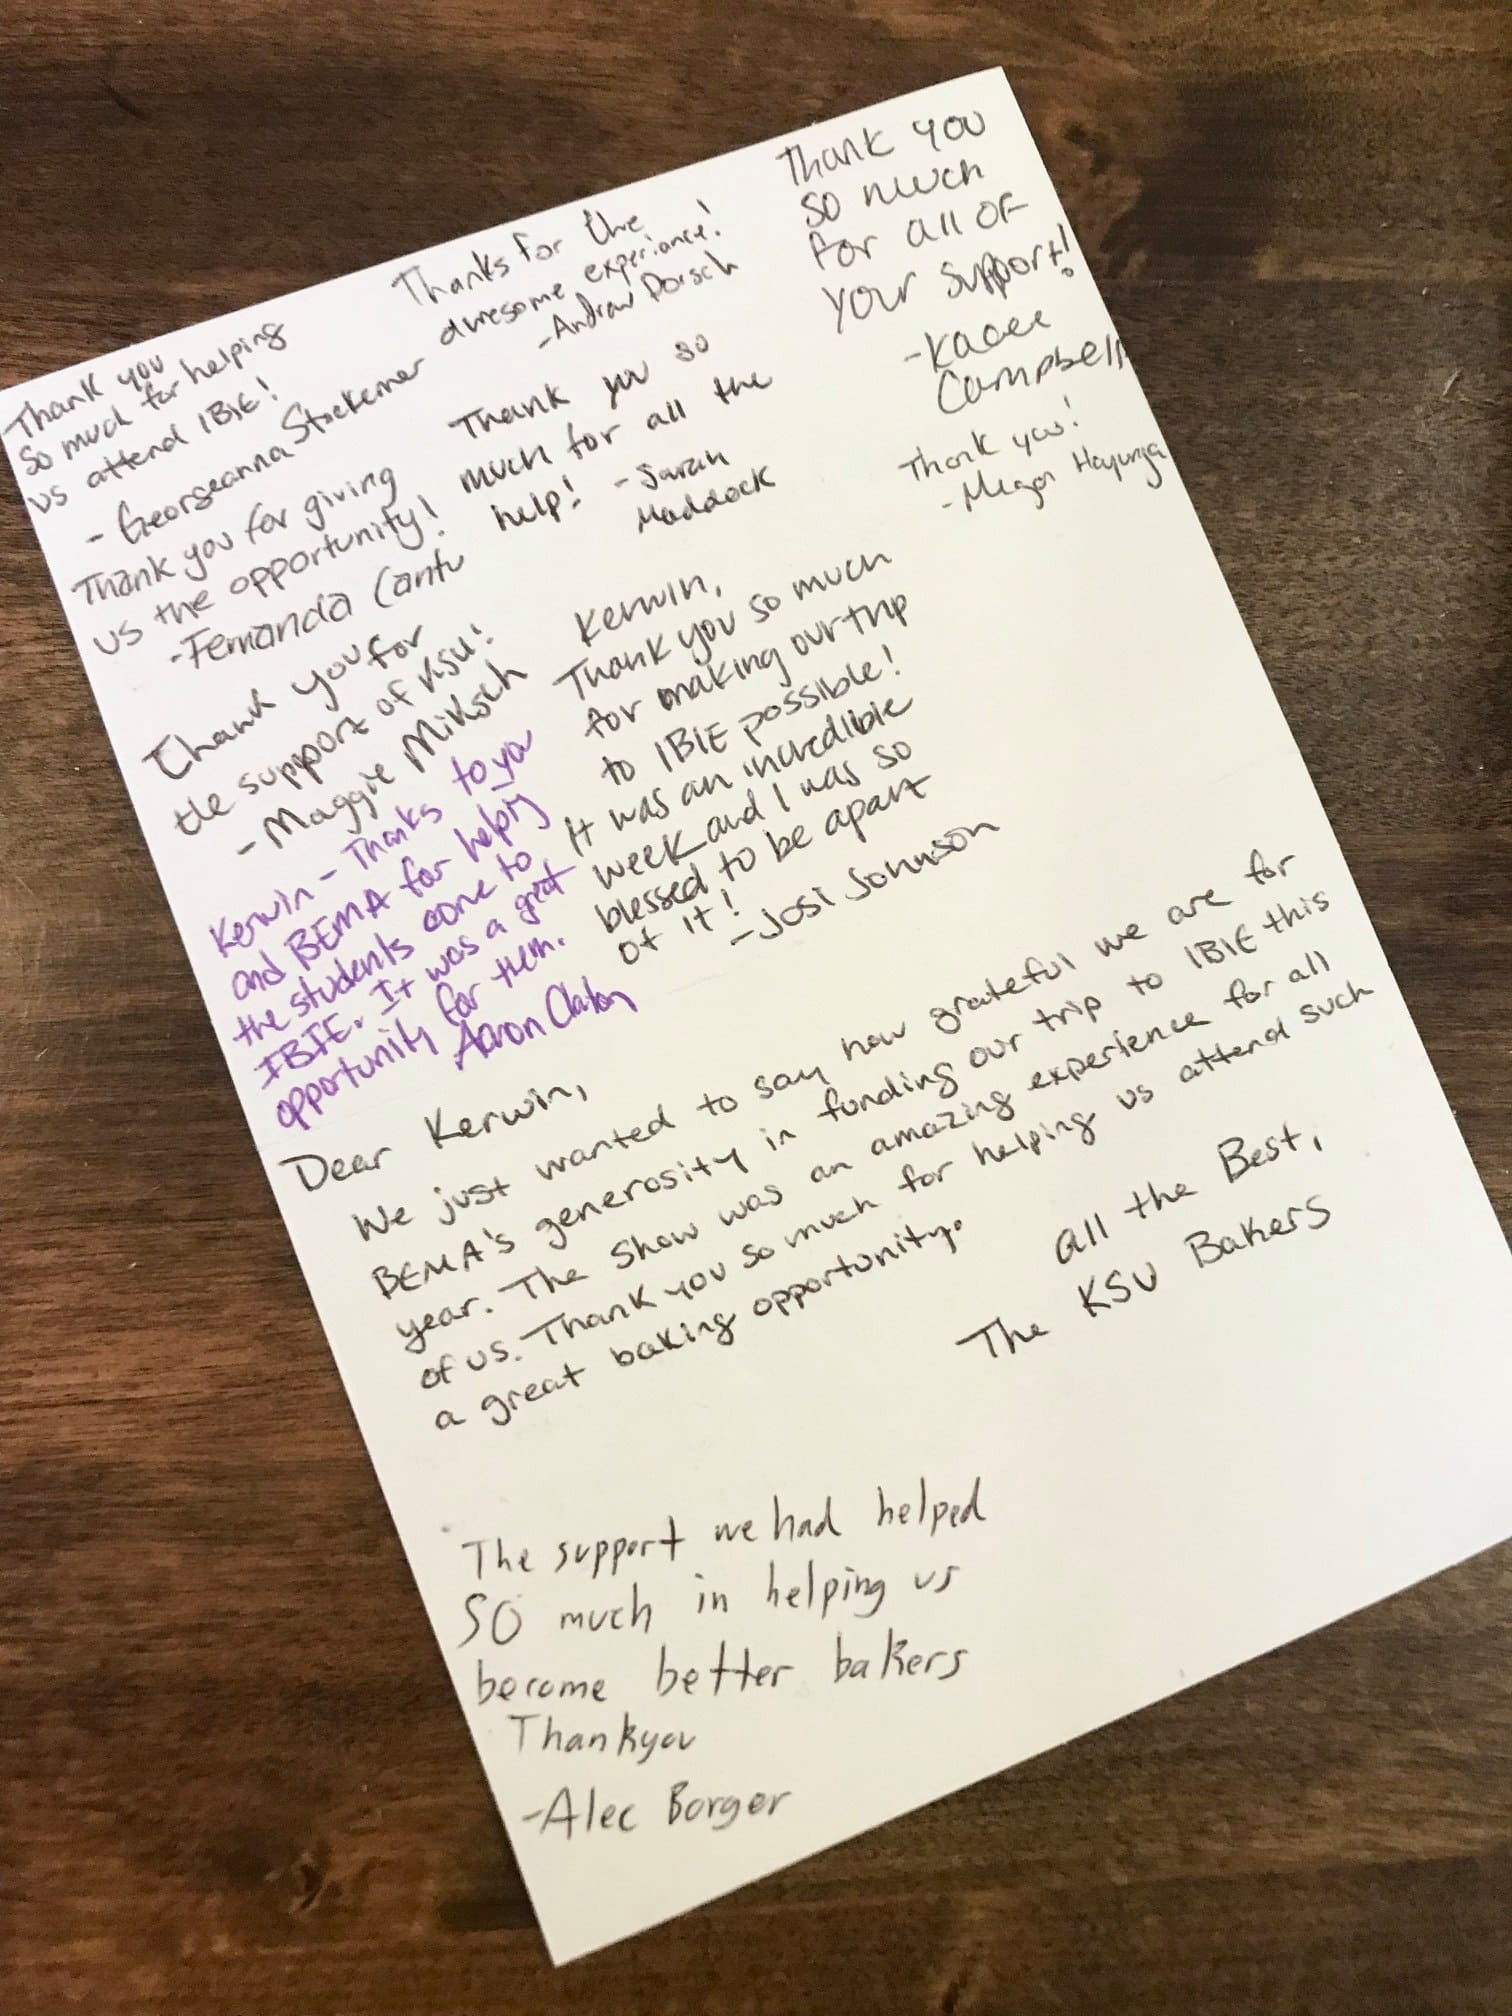 Thank you
so much for helping
us attend IBIE!
- Georgeanna Stockemer
Thanks for the
awesome experience!
- Andrew Dorsch
Thank you
so much
for all of
your support!
- Kacee
Campbell
Thank you for giving
us the opportunity!
- Fernanda Cantu
Thank you so
much for all the
help! - Sarah
Maddock
Thank you!
- Megan Hayunga
Thank you for
the support of KSU!
- Maggie Miksch
Kerwin,
Thank you so much
for making our trip
to IBIE possible!
It was an incredible
week and I was so
blessed to be apart
of it!
- Josi Johnson
Kerwin - Thanks to you
and BEMA for helping
the students come to
IBIE. It was a great
opportunity for them.
Aaron Clanton
Dear Kerwin,
We just wanted to say how grateful we are for
BEMA's generosity in funding our trip to IBIE this
year. The show was an amazing experience for all
of us. Thank you so much for helping us attend such
a great baking opportunity.
all the Best,
The KSU Bakers
The support we had helped
so much in helping us
become better bakers
Thankyou
- Alec Borger